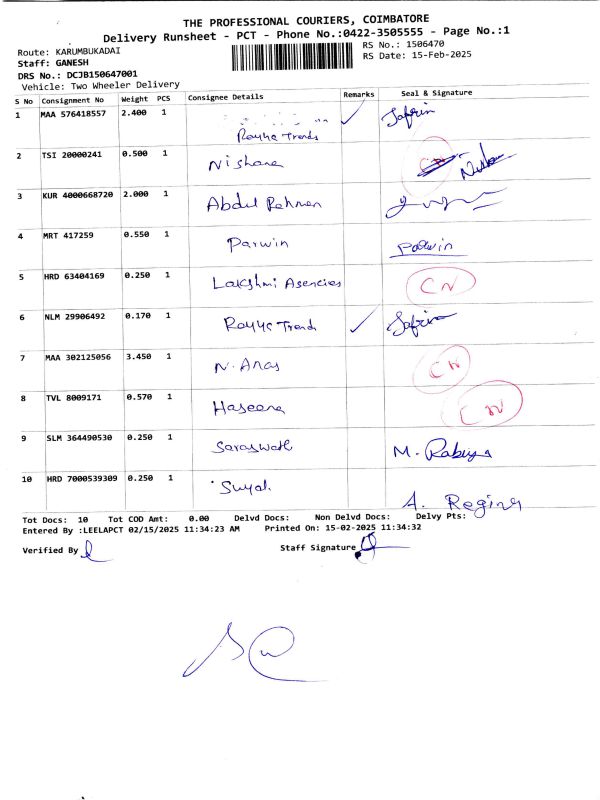 THE PROFESSIONAL COURIERS, COIMBATORE
Delivery Runsheet - PCT - Phone No.:0422-3505555 - Page No.:1
Route: KARUMBUKADAI
RS No.: 1506470
Staff: GANESH
RS Date: 15-Feb-2025
DRS No.: DCJB150647001
Vehicle: Two Wheeler Delivery
S No Consignment No Weight PCS Consignee Details Remarks Seal & Signature
1 MAA 576418557 2.400 1 Royyc Trends Safrin
2 TSI 20000241 0.500 1 Nishana
3 KUR 4000668720 2.000 1 Abdul Rehman
4 MRT 417259 0.550 1 Parwin Parwin
5 HRD 63404169 0.250 1 Lakshmi Agencies CN
6 NLM 29906492 0.170 1 Royyc Trends Safrin
7 MAA 302125056 3.450 1 N. Anas CN
8 TVL 8009171 0.570 1 Haseena CN
9 SLM 364490530 0.250 1 Saraswathi M. Rabiya
10 HRD 7000539309 0.250 1 A. Regina
Tot Docs: 10 Tot COD Amt: 0.00 Delvd Docs: Non Delvd Docs: Delvy Pts:
Entered By :LEELAPCT 02/15/2025 11:34:23 AM Printed On: 15-02-2025 11:34:32
Verified By Staff Signature